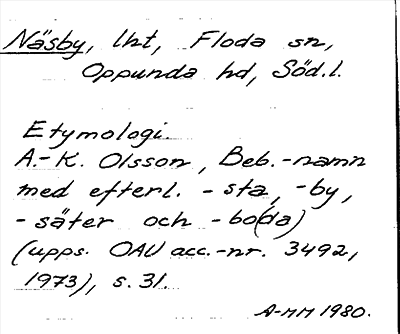 Näsby, lht, Floda sn,
Oppunda hd, Söd.l.
Etymologi.
A.-K. Olsson, Beb.-namn
med efterl. -sta, -by,
-säter och -bo(da)
(upps. OAU acc.-nr. 3492,
1973), s. 31.
A-MM 1980.